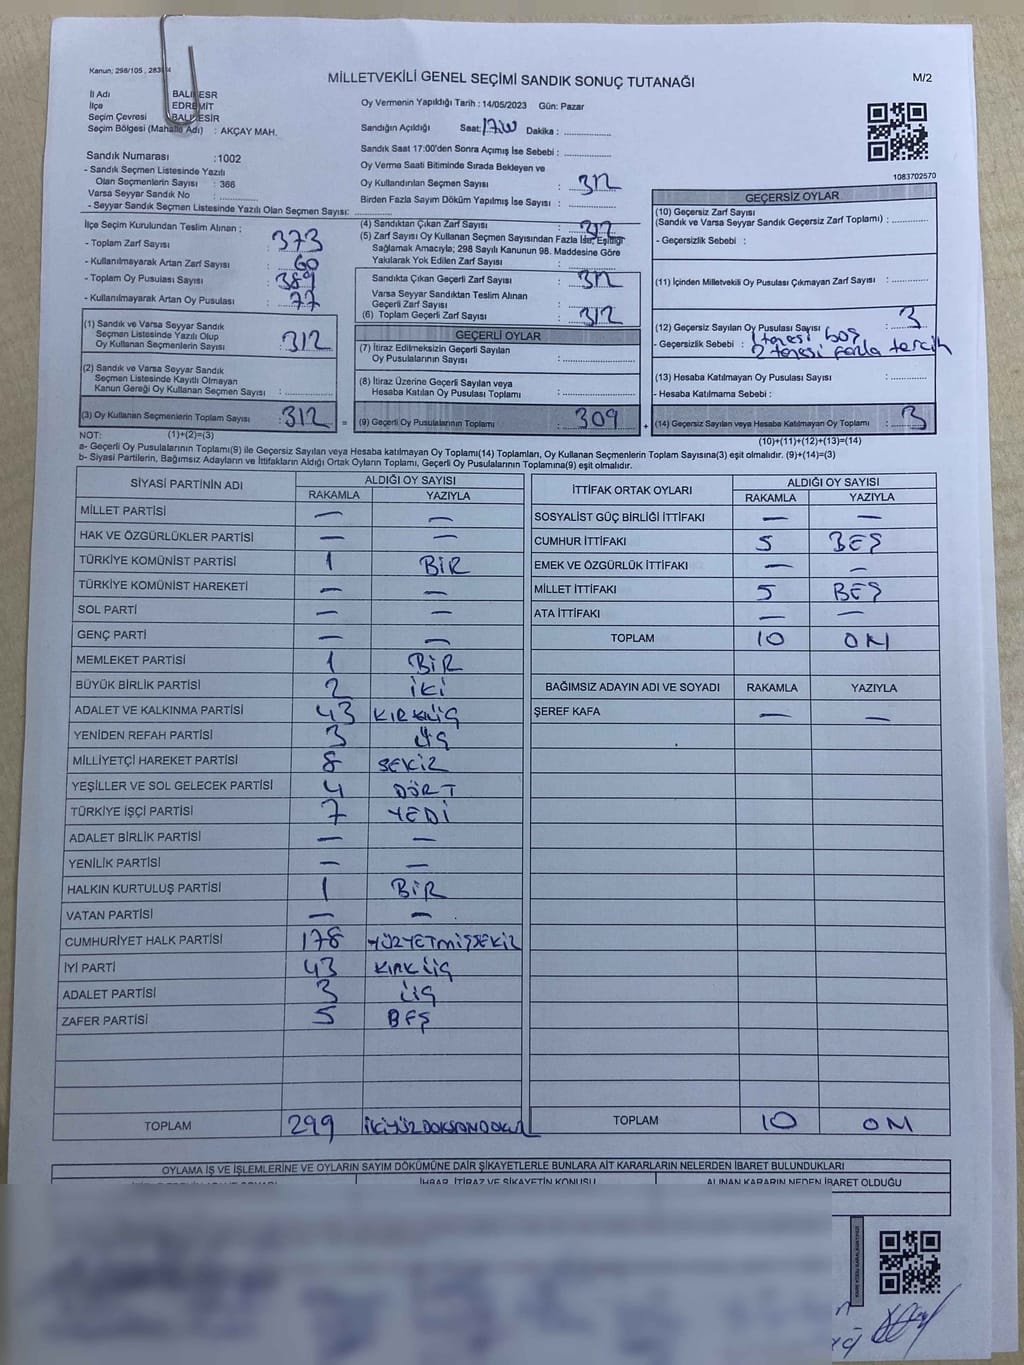 Kanun; 298/105 , 283
MİLLETVEKİLİ GENEL SEÇİMİ SANDIK SONUÇ TUTANAĞI
M/2
İl Adı BALIKESİR
İlçe EDREMİT
Seçim Çevresi BALIKESİR
Seçim Bölgesi (Mahalle Adı) : AKÇAY MAH.
Sandık Numarası : 1002
- Sandık Seçmen Listesinde Yazılı
Olan Seçmenlerin Sayısı : 366
Varsa Seyyar Sandık No : ..............
- Seyyar Sandık Seçmen Listesinde Yazılı Olan Seçmen Sayısı: ..............
Oy Vermenin Yapıldığı Tarih : 14/05/2023 Gün: Pazar
Sandığın Açıldığı Saat: Dakika : ..............
Sandık Saat 17:00'den Sonra Açılmış İse Sebebi : ..............
Oy Verme Saati Bitiminde Sırada Bekleyen ve
Oy Kullandırılan Seçmen Sayısı : 312
Birden Fazla Sayım Döküm Yapılmış İse Sayısı : ..............
1083702570
İlçe Seçim Kurulundan Teslim Alınan ;
- Toplam Zarf Sayısı : 373
- Kullanılmayarak Artan Zarf Sayısı : 60
- Toplam Oy Pusulası Sayısı : 389
- Kullanılmayarak Artan Oy Pusulası : 77
(1) Sandık ve Varsa Seyyar Sandık
Seçmen Listesinde Yazılı Olup
Oy Kullanan Seçmenlerin Sayısı : 312
(2) Sandık ve Varsa Seyyar Sandık
Seçmen Listesinde Kayıtlı Olmayan
Kanun Gereği Oy Kullanan Seçmen Sayısı : ..............
(3) Oy Kullanan Seçmenlerin Toplam Sayısı : 312 =
(1)+(2)=(3)
(4) Sandıktan Çıkan Zarf Sayısı : 312
(5) Zarf Sayısı Oy Kullanan Seçmen Sayısından Fazla İse, Eşitliği
Sağlamak Amacıyla; 298 Sayılı Kanunun 98. Maddesine Göre
Yakılarak Yok Edilen Zarf Sayısı : ..............
Sandıkta Çıkan Geçerli Zarf Sayısı : 312
Varsa Seyyar Sandıktan Teslim Alınan
Geçerli Zarf Sayısı : ..............
(6) Toplam Geçerli Zarf Sayısı : 312
GEÇERLİ OYLAR
(7) İtiraz Edilmeksizin Geçerli Sayılan
Oy Pusulalarının Sayısı : ..............
(8) İtiraz Üzerine Geçerli Sayılan veya
Hesaba Katılan Oy Pusulası Toplamı : ..............
(9) Geçerli Oy Pusulalarının Toplamı : 309 +
GEÇERSİZ OYLAR
(10) Geçersiz Zarf Sayısı
(Sandık ve Varsa Seyyar Sandık Geçersiz Zarf Toplamı) : ..............
- Geçersizlik Sebebi :
(11) İçinden Milletvekili Oy Pusulası Çıkmayan Zarf Sayısı : ..............
(12) Geçersiz Sayılan Oy Pusulası Sayısı : 3
- Geçersizlik Sebebi : 1 tanesi boş
2 tanesi fazla tercih
(13) Hesaba Katılmayan Oy Pusulası Sayısı : ..............
- Hesaba Katılmama Sebebi :
(14) Geçersiz Sayılan veya Hesaba Katılmayan Oy Toplamı : 3
(10)+(11)+(12)+(13)=(14)
NOT:
a- Geçerli Oy Pusulalarının Toplamı(9) ile Geçersiz Sayılan veya Hesaba katılmayan Oy Toplamı(14) Toplamları, Oy Kullanan Seçmenlerin Toplam Sayısına(3) eşit olmalıdır. (9)+(14)=(3)
b- Siyasi Partilerin, Bağımsız Adayların ve İttifakların Aldığı Ortak Oyların Toplamı, Geçerli Oy Pusulalarının Toplamına(9) eşit olmalıdır.
SİYASİ PARTİNİN ADI ALDIĞI OY SAYISI
RAKAMLA YAZIYLA
MİLLET PARTİSİ — —
HAK VE ÖZGÜRLÜKLER PARTİSİ — —
TÜRKİYE KOMÜNİST PARTİSİ 1 BİR
TÜRKİYE KOMÜNİST HAREKETİ — —
SOL PARTİ — —
GENÇ PARTİ — —
MEMLEKET PARTİSİ 1 BİR
BÜYÜK BİRLİK PARTİSİ 2 İKİ
ADALET VE KALKINMA PARTİSİ 43 KIRKÜÇ
YENİDEN REFAH PARTİSİ 3 ÜÇ
MİLLİYETÇİ HAREKET PARTİSİ 8 SEKİZ
YEŞİLLER VE SOL GELECEK PARTİSİ 4 DÖRT
TÜRKİYE İŞÇİ PARTİSİ 7 YEDİ
ADALET BİRLİK PARTİSİ — —
YENİLİK PARTİSİ — —
HALKIN KURTULUŞ PARTİSİ 1 BİR
VATAN PARTİSİ — —
CUMHURİYET HALK PARTİSİ 178 YÜZYETMİŞSEKİZ
İYİ PARTİ 43 KIRKÜÇ
ADALET PARTİSİ 3 ÜÇ
ZAFER PARTİSİ 5 BEŞ
TOPLAM 299 İKİYÜZDOKSANDOKUZ
İTTİFAK ORTAK OYLARI ALDIĞI OY SAYISI
RAKAMLA YAZIYLA
SOSYALİST GÜÇ BİRLİĞİ İTTİFAKI — —
CUMHUR İTTİFAKI 5 BEŞ
EMEK VE ÖZGÜRLÜK İTTİFAKI — —
MİLLET İTTİFAKI 5 BEŞ
ATA İTTİFAKI — —
TOPLAM 10 ON
BAĞIMSIZ ADAYIN ADI VE SOYADI RAKAMLA YAZIYLA
ŞEREF KAFA — —
TOPLAM 10 ON
OYLAMA İŞ VE İŞLEMLERİNE VE OYLARIN SAYIM DÖKÜMÜNE DAİR ŞİKAYETLERLE BUNLARA AİT KARARLARIN NELERDEN İBARET BULUNDUKLARI
İHBAR, İTİRAZ VE ŞİKAYETİN KONUSU ALINAN KARARIN NEDEN İBARET OLDUĞU